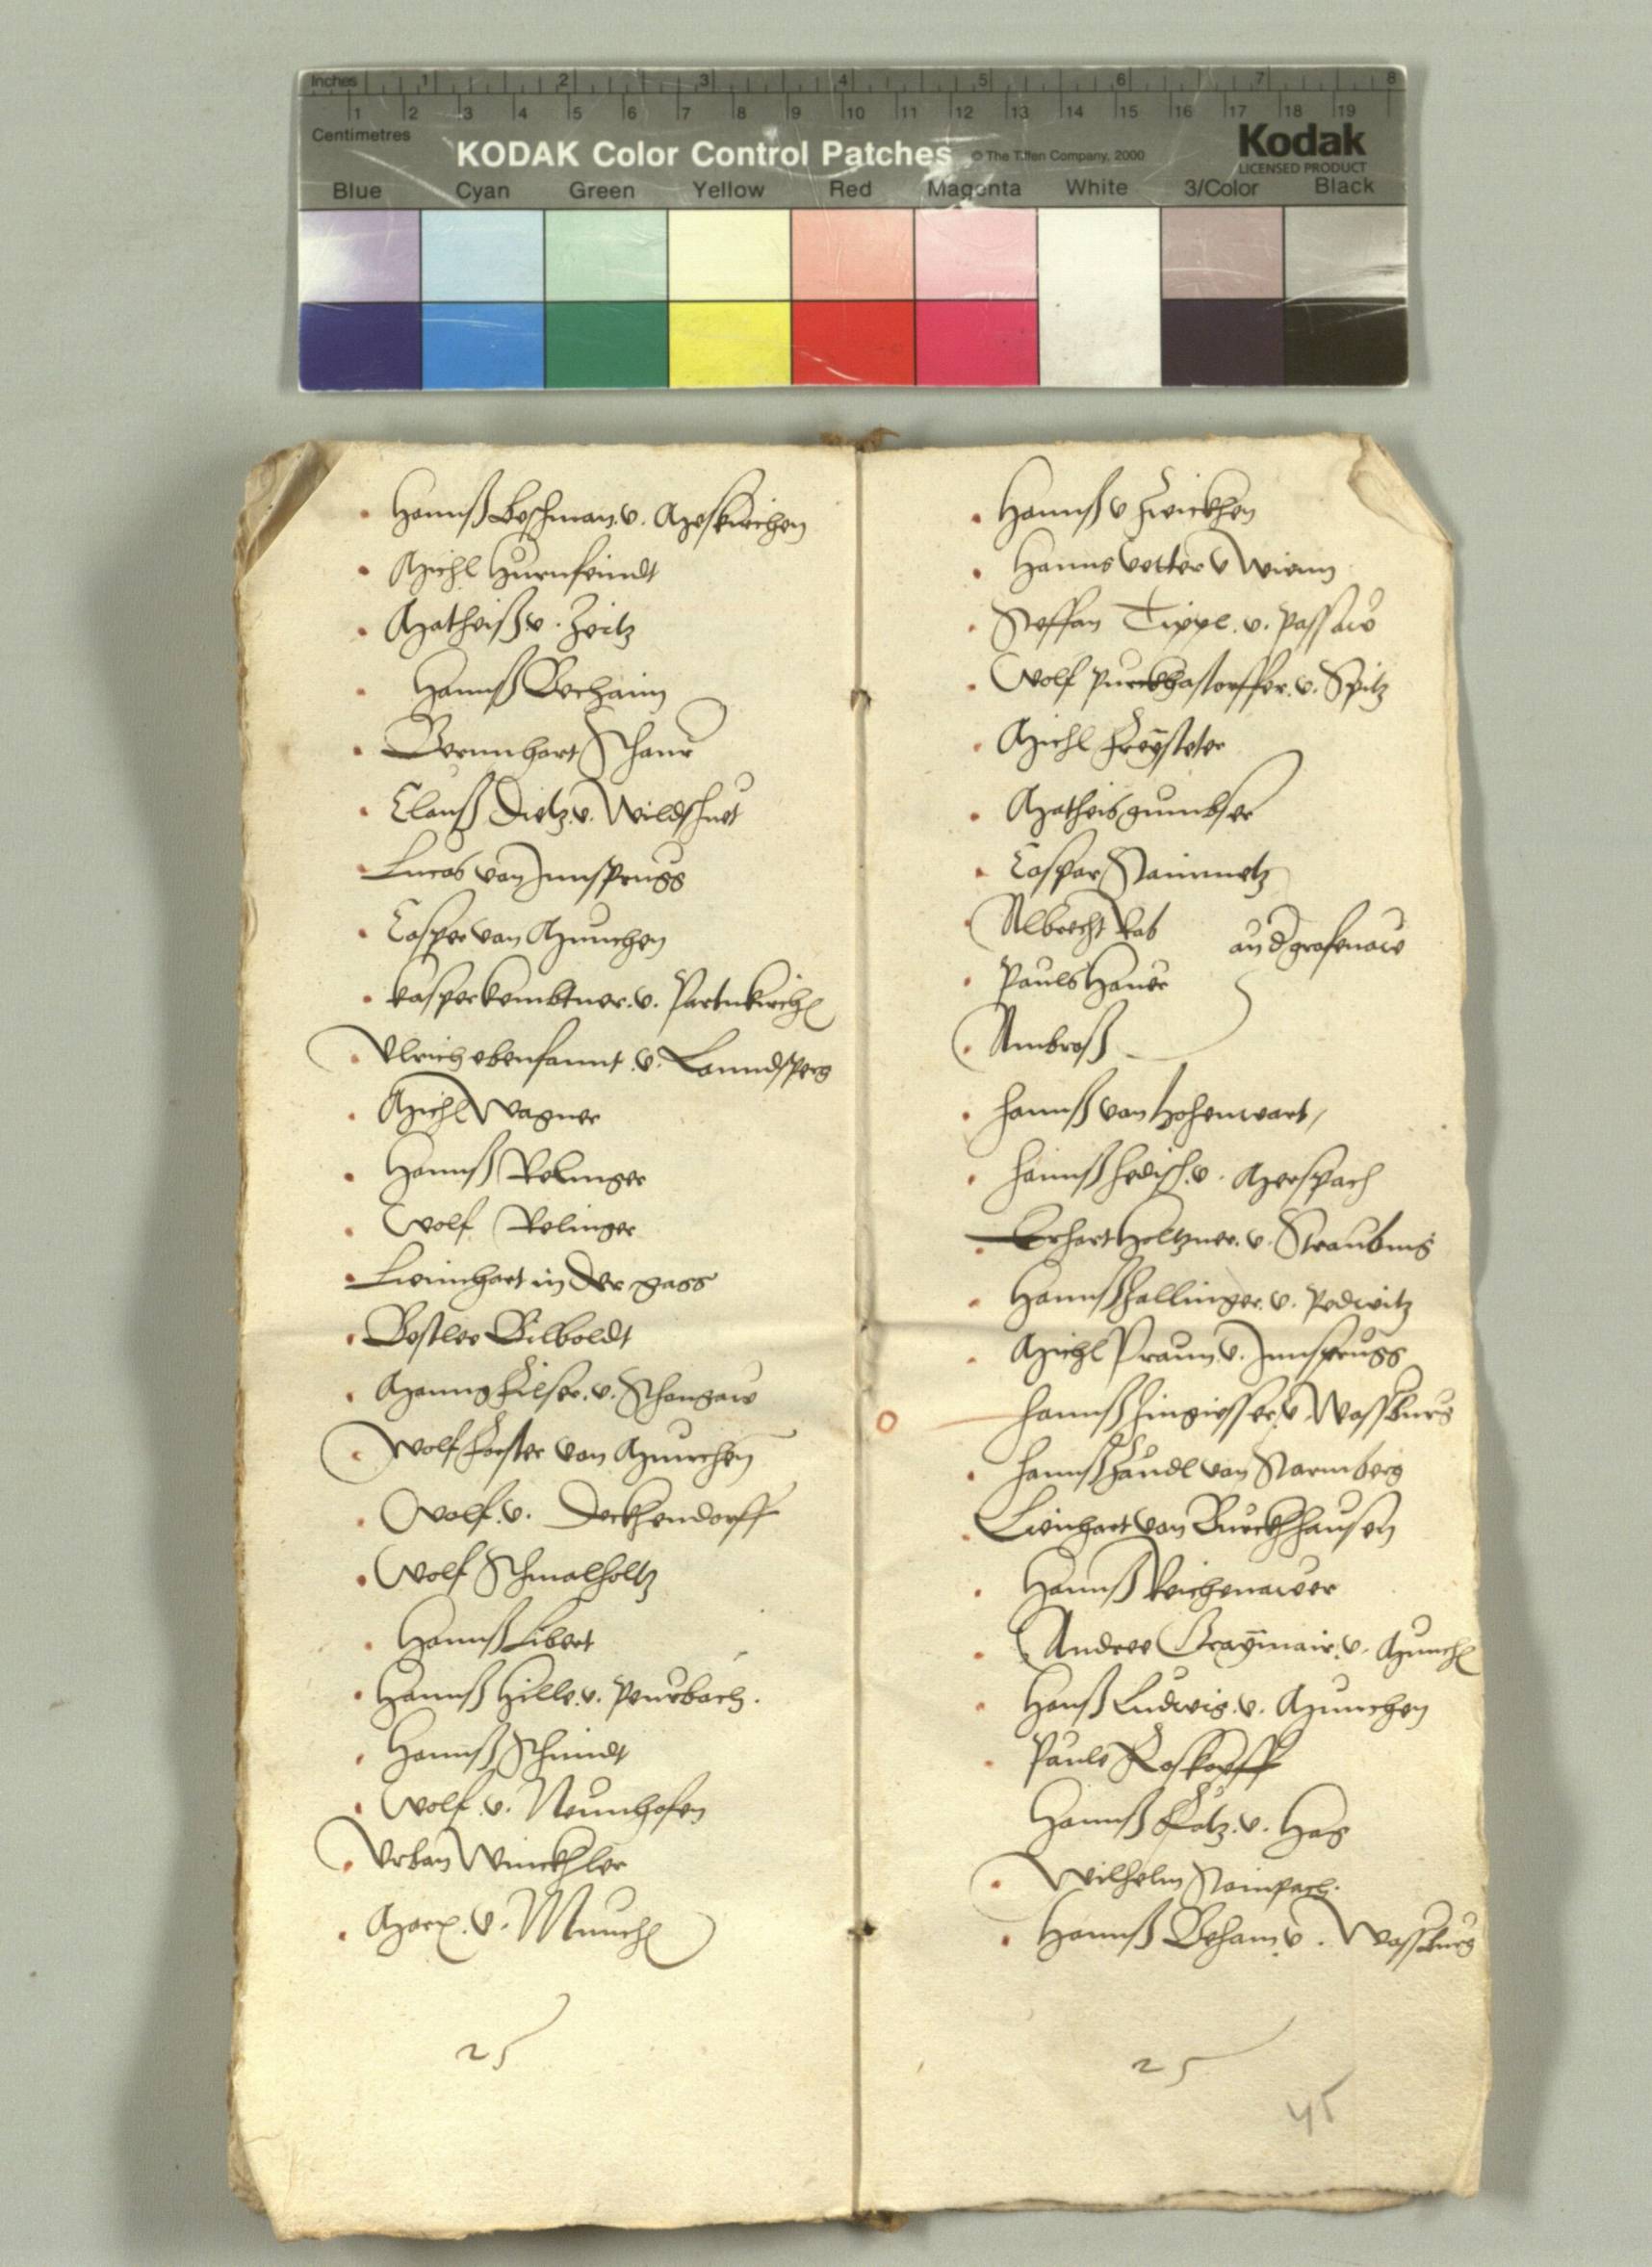 Inches 1 2 3 4 5 6 7 8
1 2 3 4 5 6 7 8 9 10 11 12 13 14 15 16 17 18 19
Centimetres
KODAK Color Control Patches © The Tiffen Company, 2000 Kodak
LICENSED PRODUCT
Blue Cyan Green Yellow Red Magenta White 3/Color Black
Hannß v.
Michl Hurnfeindt
Matheiß v. Zeitz
Hannß Bechaim
Bernnhart Schaur
Clauß Dietz v. Wildshuet
Lucas van Innsprugg
Casper van Munchen
kasper kembtner. v. Partnkirch
Ulrich ebenfannt. v. Lanndsperg
Michl Wagner
Hannß Relinger
Wolf Relinger
Lienhart in der gass
Bastler Bilboldt
Mang Hilser. v. Schongaw
Wolf Forster van Munchen
Wolf. v. Deckhendorff
Wolf Schmalholtz
Hannß Libert
Hannß Hille. v. Peurbach.
Hannß Schmidt
Wolf. v. Neunhofen
Urban Winckhler
Marx. v. Munch
25
Hannß v Zwickhen
Hanns Vetter v Wienn
Steffan Tippl. v. Passaw
Wolf Purckhastorffer. v. Spitz
Michl Freysteter
Matheis
Caspar Stainmetz
Albrecht Rab
an d grafenaw
Pauls Hauer
Ambroß
hannß van hohenwart
hannß v. Merspach
Erhart Holtzner. v. Straubing
Hannß Hallinger. v. Pedwitz
Michl Praun. v. Innsprugg
hannß Zingiesser. v. Wasserburg
hannß Händl van Starnberg
Lienhart van Burckhhausen
Hannß Reichenawer
Andree Graymair. v. Munch
Hanß Ludwig. v. Munchen
Pauls Roskopff
Hannß v. Hag
Wilhelm Stainpach.
Hannß Beham v. Wasserburg
25
45